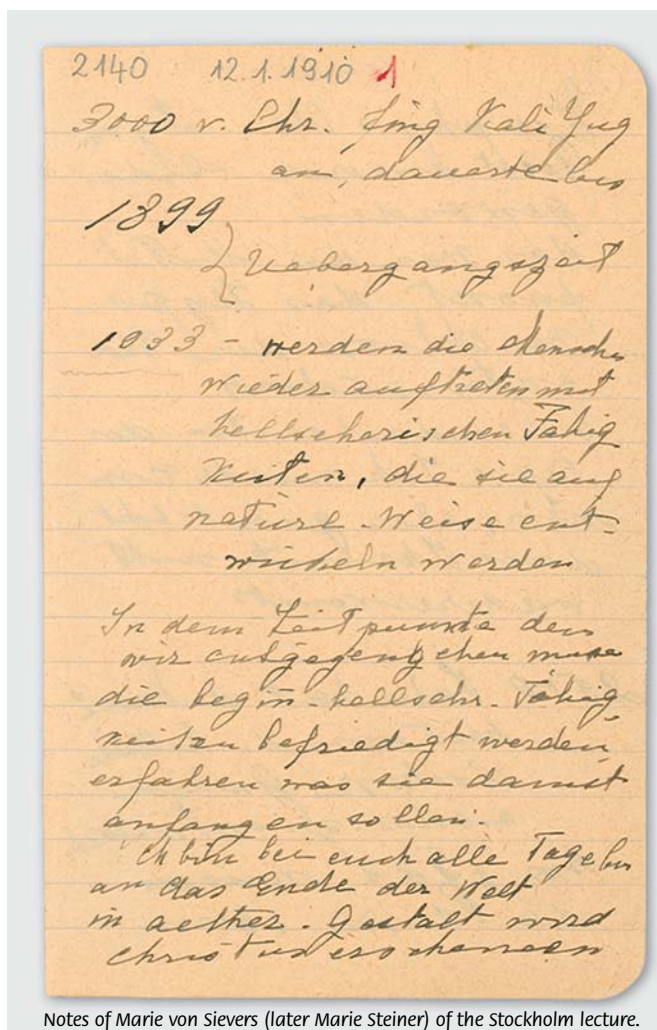 2140 12.1.1910 1
3000 v. Chr. fing Kali Yug
an, dauerte bis
1899
Uebergangszeit
1933 - werden die Menschen
wieder auftreten mit
hellseherischen Fähig
keiten, die sie auf
natürl. Weise ent-
wickeln werden
In dem Zeitpunkte dem
wir entgegengehen muss
die beginn. hellsehr. Fähig
keiten befriedigt werden,
erfahren was sie damit
anfangen sollen.
Ich bin bei euch alle Tage bis
an das Ende der Welt
in aether. Gestalt wird
Christus erscheinen
Notes of Marie von Sievers (later Marie Steiner) of the Stockholm lecture.